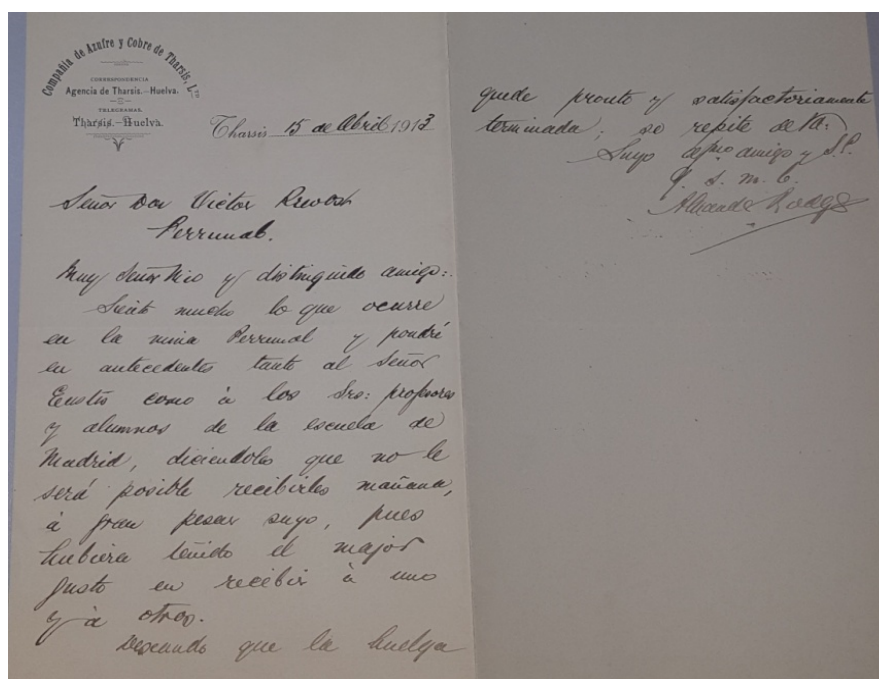 Compañia de Azufre y Cobre de Tharsis, Lda
CORRESPONDENCIA
Agencia de Tharsis.-Huelva.
TELEGRAMAS
Tharsis.-Huelva.
Tharsis 15 de Abril 1913
Señor Don Victor
Perrunal.
Muy Señor Mio y distinguido amigo:
Siento mucho lo que ocurre
en la mina Perrunal y pondré
en antecedentes tanto al Señor
Eustis como à los Srs: profesores
y alumnos de la escuela de
Madrid, diciendoles que no le
será posible recibirles mañana,
à gran pesar suyo, pues
hubiera tenido el major
gusto en recibir à uno
y à otros.
Deseando que la huelga
quede pronto y satisfactoriamente
terminada, se repite de Vd.
Suyo afmo amigo y S.S.
q. s. m. b.